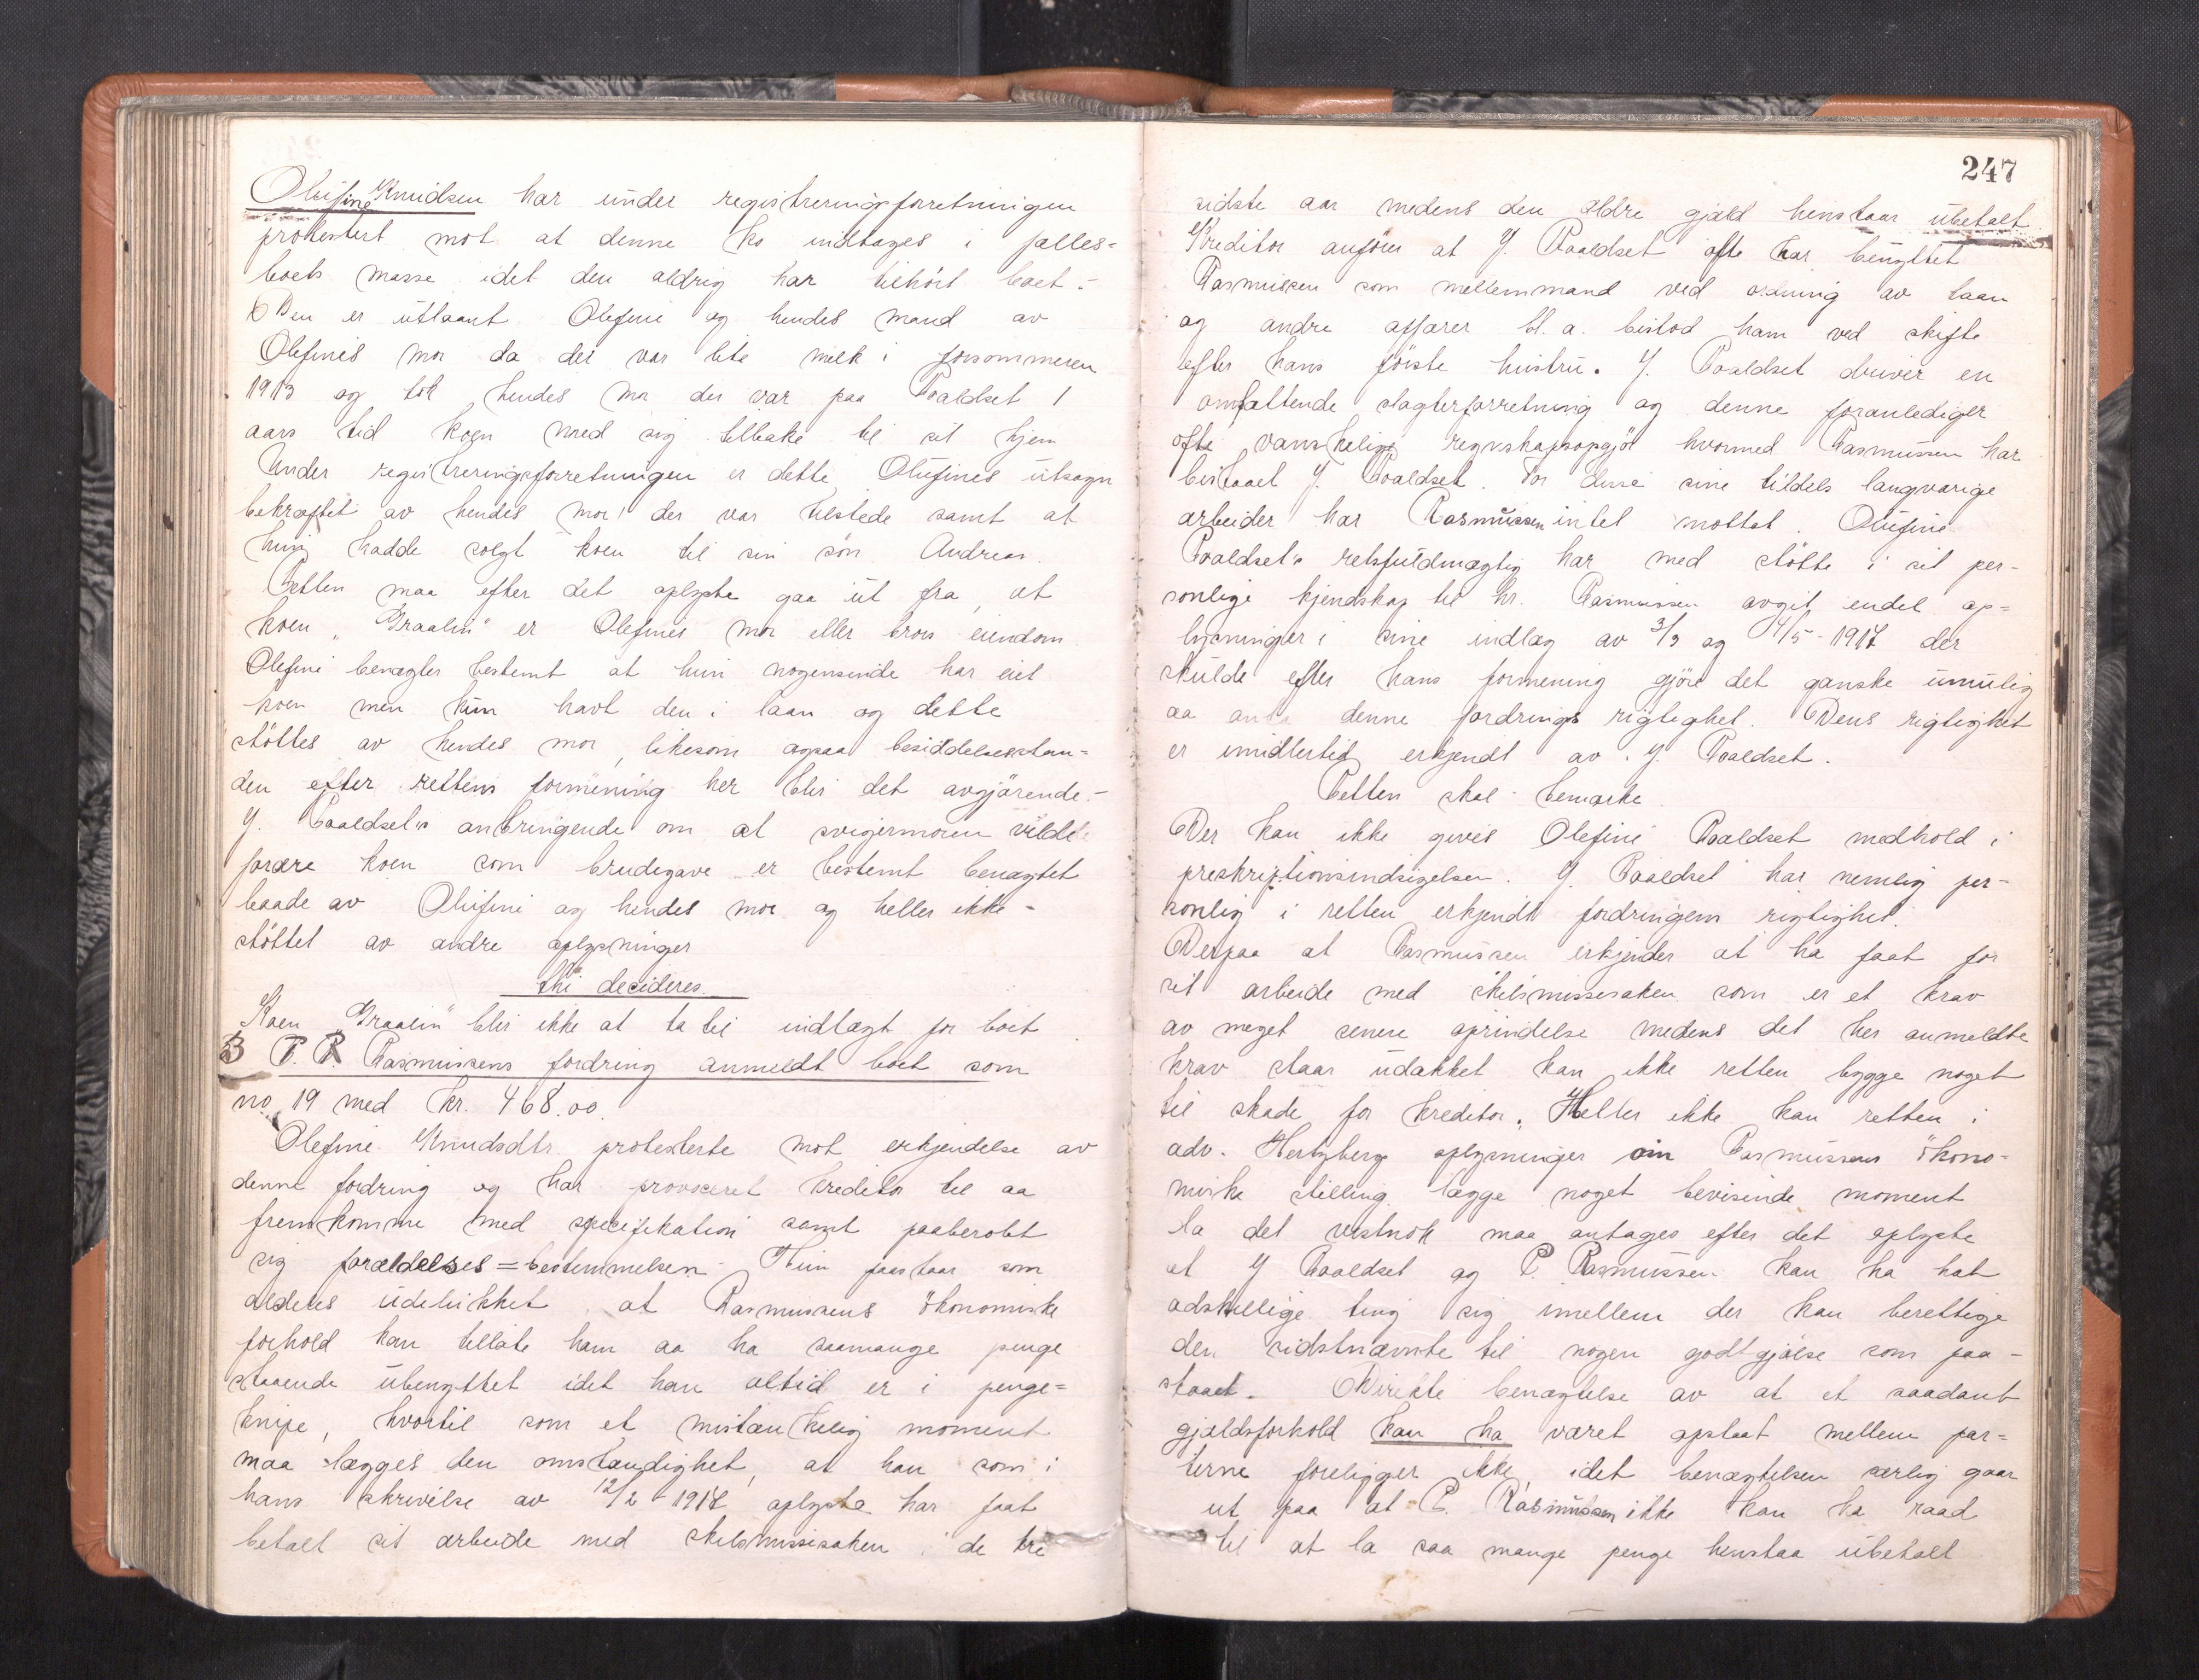 Olufine Knudsen har under registreringsforretningen
protestert mot at denne ko indtages i fælles=
boets masse idet den aldrig har tilhört boet.-
Den er utlaant Olefine og hendes mand av
Olefines mor da der var lite melk i forsommeren
1913 og tok hendes mor der var paa Raaldset 1
aars tid koen med sig tilbake til sit hjem
Under registreringsforretningen er dette Olufines utsagn
bekræftet av hendes mor der var tilstede samt at
hun hadde solgt koen til sin sön Andreas.
Retten maa efter det oplyste gaa ut fra, at
koen "Graalin" er Olefines mor eller brors eiendom
Olefine benægter bestemt at hun nogensinde har eiet
koen men kun havt den i laan og dette
stöttes av hendes mor, likesom ogsaa besiddelsesstan=
den efter rettens formening her blir det avgjörende.-
J. Raaldset's anbringende om at svigermoren vilde
forære koen som brudegave er bestemt benægtet
baade av Olufine og hendes mor og heller ikke -
stöttet av andre oplysninger
thi decideres.
Koen "Graalin" blir ikke at ta til indtægt for boet
B P. R. Rasmussens fordring anmeldt boet som
no 19 med kr. 468.00.
Olefine Knudsdtr. protesterte mot erkjendelse av
denne fordring og har provoceret kreditor til aa
fremkomme med specifikation samt paaberobt
sig forældelses=bestemmelsen. Hun paastaar som
aldeles udelukket at Rasmussens ökonomiske
forhold kan tillate ham aa ha saamange penge
staaende ubenyttet idet han altid er i penge=
knipe, hvortil som et mistænkelig moment
maa lægges den omstændighet, at han som i
hans skrivelse av 12/2 - 1917 oplyste har faat
betalt sit arbeide med skilsmissesaken i de tre
247
sidste aar medens den ældre gjæld henstaar ubetalt
Kreditor anförer at J. Raaldset ofte har benyttet
Rasmussen som mellemmand ved ordning av laan
og andre affærer bl. a. bistod ham ved skifte
efter hans förste hustru. J. Raaldset driver en
omfattende slagterforretning og denne foranlediger
ofte vanskelige regnskapsopgjör hvormed Rasmussen har
bistaaet J. Raaldset. For disse sine tildels langvarige
arbeider har Rasmussen intet mottat. Olufine
Raaldset's retsfuldmægtig har med stötte i sit per-
sonlige kjendskap til hr. Rasmussen avgit endel op=
lysninger i sine indlæg av 3/3 og 4/5 - 1917 der
skulde efter hans formening gjöre det ganske umulig
aa anta denne fordrings rigtighet. Dens rigtighet
er imidlertid erkjendt av J. Raaldset.
Retten skal bemærke
Der kan ikke gives Olefine Raaldset medhold i
preskriptionsindsigelsen. J. Raaldset har nemlig per-
sonlig i retten erkjendt fordringens rigtighet.
Derpaa at Rasmussen erkjender at ha faat for
sit arbeide med skilsmissesaken som er et krav
av meget senere oprindelse medens det her anmeldte
krav staar udækket kan ikke retten bygge noget
til skade for kreditor. Heller ikke kan retten i
adv. Hertzberg oplysninger om Rasmussens ökono-
miske stilling lægge noget bevisende moment
da det vistnok maa antages efter det oplyste
at J Raaldset og P. Rasmussen kan ha hat
adskillige ting sig imellem der kan berettige
den sidstnævnte til nogen godtgjörelse som paa-
staaet. Direkte benægtelse av at et saadant
gjældsforhold kan ha været opstaat mellem par=
terne foreligger ikke, idet benægtelsen særlig gaar
ut paa at P. Rasmussen ikke kan ha raad
til at la saa mange penge henstaa ubetalt